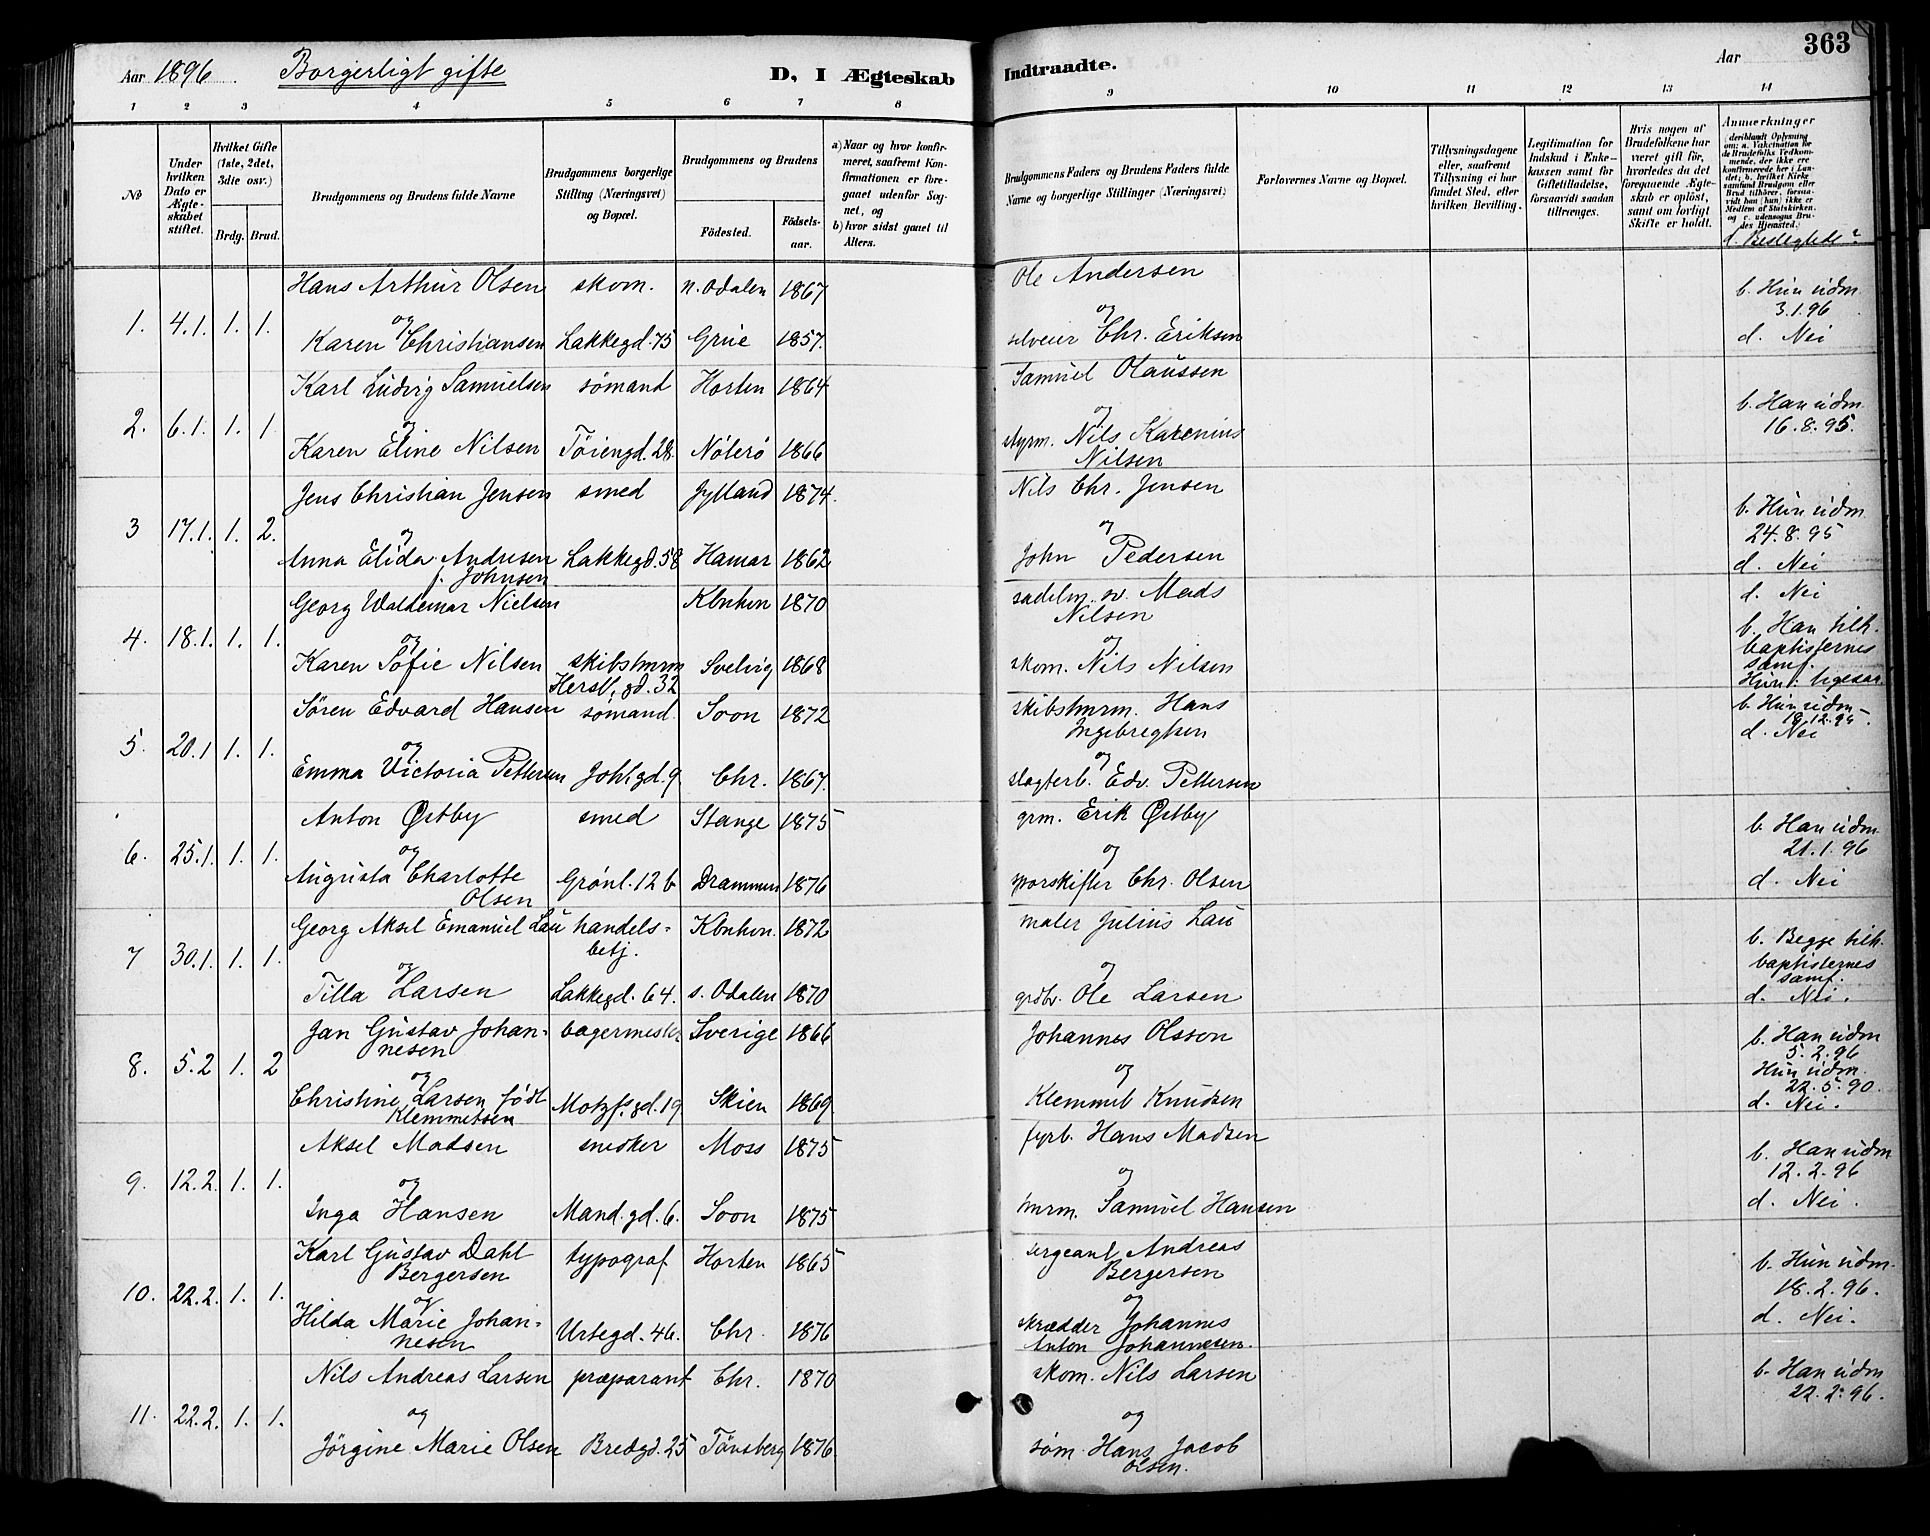 Aar 1896 Borgerligt gifte D, I Ægteskab Indtraadte. Aar 363
1 2 3 4 5 6 7 8 9 10 11 12 13 14
№
Under hvilken Dato er Ægteskabet stiftet.
Hvilket Gifte (1ste, 2det, 3dte osv.)
Brdg. Brud.
Brudgommens og Brudens fulde Navne
Brudgommens borgerlige Stilling (Næringsvei) og Bopæl.
Brudgommens og Brudens
Födested. Födsels-aar.
a) Naar og hvor konfirmeret, saafremt Konfirmationen er foregaaet udenfor Sognet, og
b) hvor sidst gaaet til Alters.
Brudgommens Faders og Brudens Faders fulde Navne og borgerlige Stillinger (Næringsvei)
Forlovernes Navne og Bopæl.
Tillysningsdagene eller, saafremt Tillysning ei har fundet Sted, efter hvilken Bevilling.
Legitimation for Indskud i Enkekassen samt for Giftetilladelse, forsaavidt saadan tiltrænges.
Hvis nogen af Brudefolkene har været gift før, hvorledes da det foregaaende Ægteskab er opløst, samt om lovligt Skifte er holdt.
Anmerkninger (deriblandt Oplysning om: a. Vakcination for de Brudefolks Vedkommende, der ikke ere konfirmerede her i Landet; b. hvilket Kirkesamfund Brudgom eller Brud tilhörer, forsaavidt han (hun) ikke er Medlem af Statskirken, og c. udensogns Brudes Hjemsted.)
d. Beslegtede?
Hans Arthur Olsen skom. n. Odalen 1867 Ole Andersen b. Hun udm.
3.1.96
1. 4.1. 1. 1. og og
Karen Christiansen Lakkegd. 75 Grue 1857. selveier Chr. Eriksen d. Nei
Karl Ludvig Samuelsen sømand Horten 1864 Samuel Olaussen b. Han udm.
2. 6.1. 1. 1. og og 16.8.95.
Karen Eline Nilsen Tøiengd. 28. Nøterø 1866 styrm. Nils Karenius
Nilsen
Jens Christian Jensen smed Jylland 1874. Nils Chr. Jensen b. Hun udm
3 17.1. 1. 2. og og 24.8.95
Anna Elida Andresen Lakkegd. 58 Hamar 1862 John Pedersen d. Nei
f. Johnsen
Georg Waldemar Nielsen Kbnhvn 1870 sadelm. sv. Mads d. Nei
Nilsen
4. 18.1. 1. 1. og og b. Han tilh.
baptisternes
Karen Sofie Nilsen skibstmrm Svelvig 1868 skom. Nils Nilsen samf.
Hersl. gd. 32 Hun: ligesaa.
Søren Edvard Hansen sømand. Soon 1872 skibstmrm. Hans b. Hun udm
Ingebregtsen 18.12.95.
5. 20.1 1. 1. og og d. Nei
Emma Victoria Pettersen Johs gd. 9. Chr. 1867. slagterb. Edv. Pettersen
Anton Østby smed Stange 1875 grm. Erik Østby b. Han udm
6. 25.1. 1. 1. og og 21.1.96
Augusta Charlotte Grønl. 12 b Drammen 1876 sporskifter Chr. Olsen d. Nei
Olsen
Georg Aksel Emanuel Lau handels- Kbnhvn. 1872 maler Julius Lau b. Begge tilh.
betj. baptisternes
7 30.1. 1. 1. og og samf.
Tilla Larsen Lakkegd. 64. s. Odalen 1870 grdbr. Ole Larsen d. Nei.
Jan Gustav Johan- bagermester Sverige 1866 Johannes Olsson b. Han udm
nesen 5.2.96
8. 5.2 1. 2 og og Hun udm.
22.5.90.
Christine Larsen født Motzfs. gd. 19 Skien 1869. Klemmet Knudsen d. Nei.
Klemmetsen
Aksel Madsen snedker Moss 1875 fyrb. Hans Madsen b. Han udm
9. 12.2. 1. 1. og og 12.2.96
Inga Hansen Mand. gd. 6. Soon 1875 tmrm. Samuel Hansen d. Nei.
Karl Gustav Dahl typograf Horten 1865 sergeant Andreas b. Hun udm.
Bergersen Bergersen 18.2.96.
10. 22.2. 1. 1. og og d. Nei.
Hilda Marie Johan- Urtegd. 46. Chr. 1876 skrædder Johannes
nesen Anton Johannesen.
Nils Andreas Larsen præparant Chr. 1870 skom. Nils Larsen b. Han udm
22.2.96.
11. 22.2. 1. 1. og og
Jørgine Marie Olsen Bredgd. 25 Tønsberg 1876. søm. Hans Jacob
Olsen.